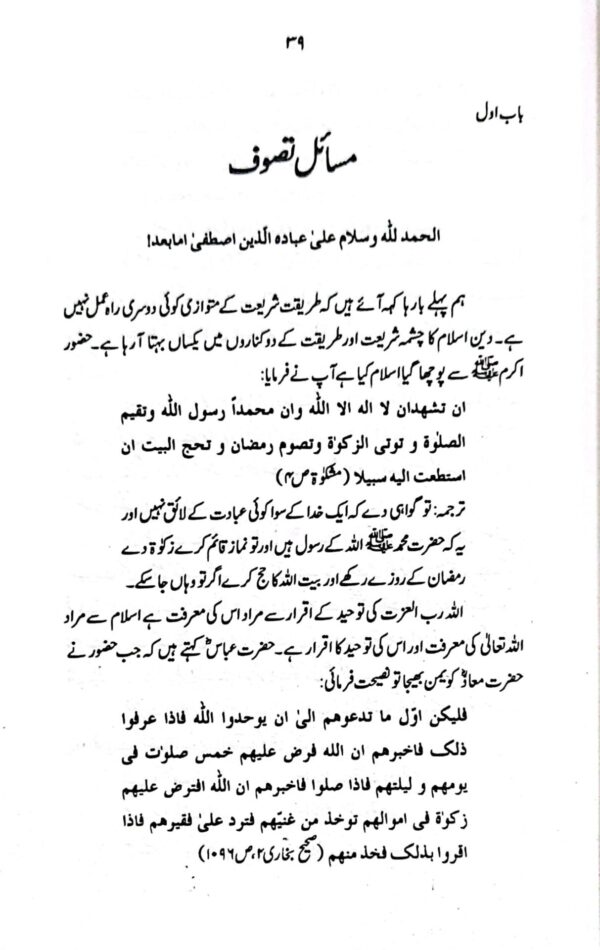 ۳۹
باب اول
مسائل تصوف
الحمد للّٰہ وسلام علیٰ عبادہ الّذین اصطفیٰ امابعد!
ہم پہلے بارہا کہہ آئے ہیں کہ طریقت شریعت کے متوازی کوئی دوسری راہ عمل نہیں
ہے۔ دین اسلام کا چشمہ شریعت اور طریقت کے دو کناروں میں یکساں بہتا آ رہا ہے۔ حضور
اکرم ﷺ سے پوچھا گیا اسلام کیا ہے آپ نے فرمایا:
ان تشھدان لا الہ الا اللّٰہ وان محمداً رسول اللّٰہ وتقیم
الصلوٰۃ و توتی الزکوٰۃ وتصوم رمضان و تحج البیت ان
استطعت الیہ سبیلا (مشکوٰۃ ص۴)
ترجمہ: تو گواہی دے کہ ایک خدا کے سوا کوئی عبادت کے لائق نہیں اور
یہ کہ حضرت محمد ﷺ اللہ کے رسول ہیں اور تو نماز قائم کرے زکوٰۃ دے
رمضان کے روزے رکھے اور بیت اللہ کا حج کرے اگر تو وہاں جا سکے۔
اللہ رب العزت کی توحید کے اقرار سے مراد اس کی معرفت ہے اسلام سے مراد
اللہ تعالیٰ کی معرفت اور اس کی توحید کا اقرار ہے۔ حضرت عباسؓ کہتے ہیں کہ جب حضور نے
حضرت معاذؓ کو یمن بھیجا تو نصیحت فرمائی:
فلیکن اوّل ما تدعوھم الیٰ ان یوحدوا اللّٰہ فاذا عرفوا
ذلک فاخبرھم ان اللہ فرض علیھم خمس صلوٰت فی
یومھم و لیلتھم فاذا صلوا فاخبرھم ان اللّٰہ افترض علیھم
زکوٰۃ فی اموالھم توخذ من غنیّھم فترد علیٰ فقیرھم فاذا
اقروا بذلک فخذ منھم (صحیح بخاری ۲، ص ۱۰۹۶)